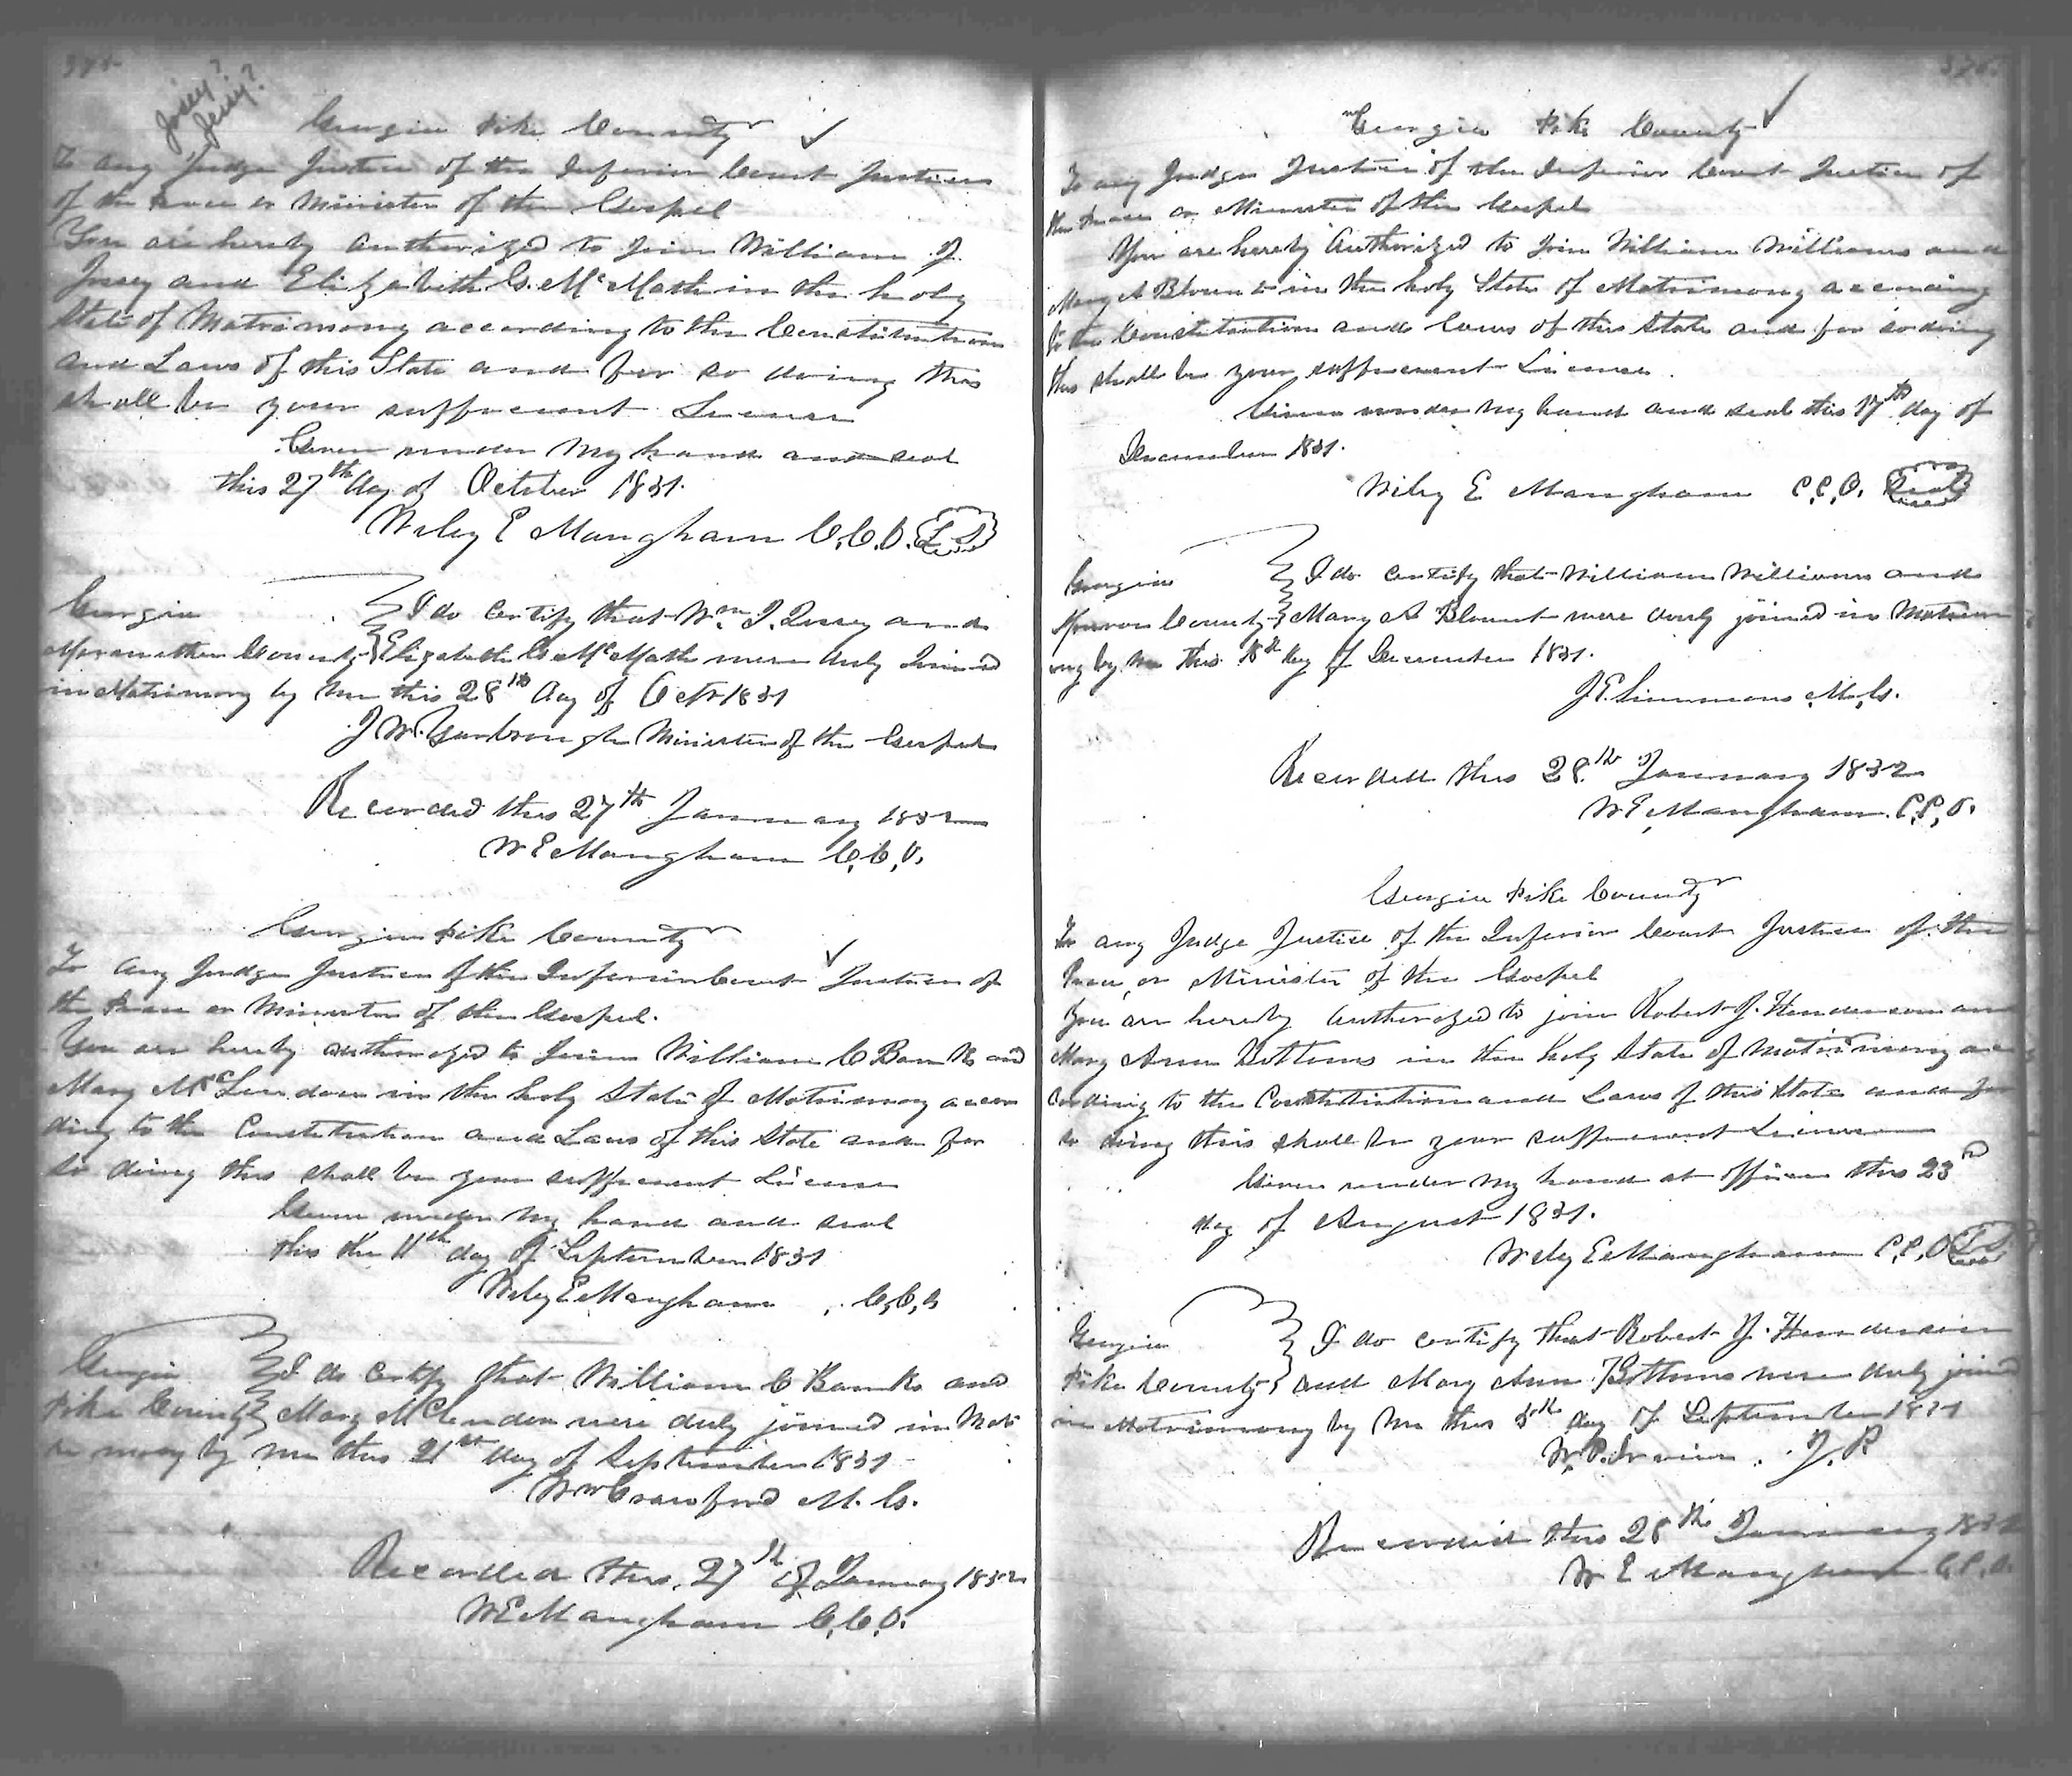 Josey?
Jessy?
Georgia Pike County
To any Judge Justice of the Inferior Court Justice
of the Peace or Minister of the Gospel
You are hereby authorized to join William J.
Jossey and Elizabeth G. McMath in the holy
State of Matrimony according to the Constitution
and Laws of this State and for so doing this
shall be your sufficient License
Given under my hand and seal
this 27th day of October 1831.
Wiley E Mangham C.C.O. L S
Georgia
Meriwether County I do certify that Wm. J. Jossey and
Elizabeth G. McMath were duly Joined
in Matrimony by me this 28th day of Octr 1831
J W. Yarbrough Minister of the Gospel
Recorded this 27th January 1832
W E Mangham C.C.O.
Georgia Pike County
To any Judge Justice of the Inferior Court Justice of
the Peace or Minister of the Gospel.
You are hereby authorized to Join William C Banks and
Mary McLendon in the holy State of Matrimony accor
ding to the Constitution and Laws of this State and for
so doing this shall be your sufficient License
Given under my hand and seal
this the 11th day of September 1831
Wiley E Mangham C.C.O
Georgia
Pike County I do certify that William C Banks and
Mary McLendon were duly joined in Mat
rimony by me this 21st day of September 1831
Wm Crawford M. G.
Recorded this 27th of January 1832
W E Mangham C.C.O.
Georgia Pike County
To any Judge Justice of the Inferior Court Justice of
the Peace or Minister of the Gospel
You are hereby Authorized to Join William Williams and
Mary A Blount in the holy State of Matrimony according
to the Constitution and laws of this State and for so doing
this shall be your sufficient License.
Given under my hand and seal this 17th day of
December 1831.
Wiley E Mangham C.C.O. Seal
Georgia
Monroe County I do certify that William Williams and
Mary A Blount were duly joined in Matrim
ony by me this 18th day of December 1831.
J E Simmons M.G.
Recorded this 28th January 1832
W E Mangham C.C.O.
Georgia Pike County
To any Judge Justice of the Inferior Court Justice of the
Peace or Minister of the Gospel
You are hereby authorized to join Robert J. Henderson and
Mary Ann Bottoms in the holy State of Matrimony ac
cording to the Constitution and Laws of this State and for
so doing this shall be your sufficient License
Given under my hand at office this 23d
day of August 1831.
Wiley E Mangham C.C.O L S
Georgia
Pike County I do certify that Robert J. Henderson
and Mary Ann Bottoms were duly joined
in Matrimony by me this 5th day of September 1831
W. P. Irvin J. P.
Recorded this 28th January 1832
W E Mangham C.C.O.